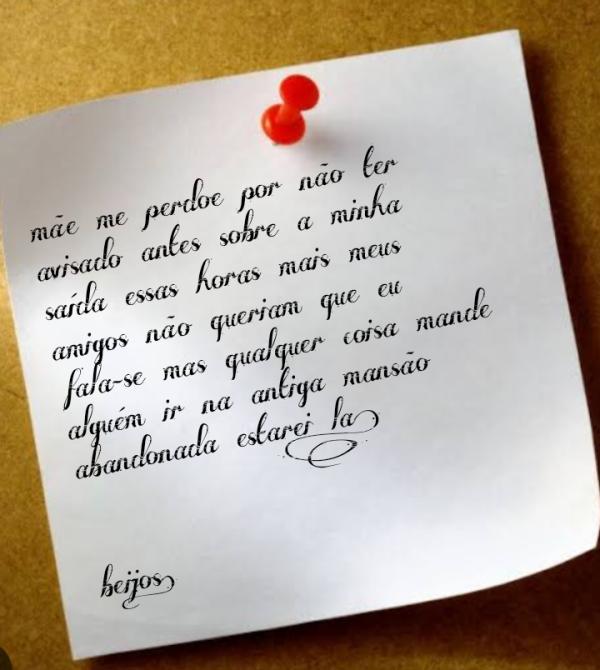 mãe me perdoe por não ter
avisado antes sobre a minha
saída essas horas mais meus
amigos não queriam que eu
fala-se mas qualquer coisa mande
alguém ir na antiga mansão
abandonada estarei la
beijos